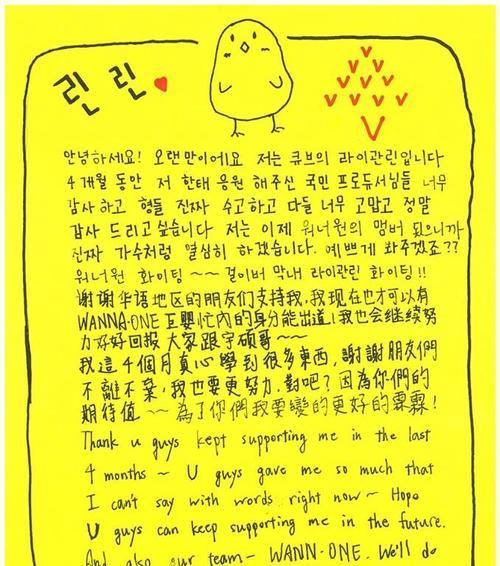 린린
안녕하세요! 오랜만이에요 저는 큐브의 라이관린입니다
4개월 동안 저 한태 응원 해주신 국민 프로듀서님들 너무
감사 하고 형들 진짜 수고하고 다들 너무 고맙고 정말
감사 드리고 싶습니다 저는 이제 워너원의 멤버 됬으니까
진짜 가수처럼 열심히 하겠습니다. 예쁘게 봐주겠죠??
워너원 화이팅 ~~ 걸이버 막내 라이관린 화이팅!!
谢谢华语地区的朋友们支持我,我现在也才可以有
WANNA·ONE 互婴忙内的身分能出道!我也会继续努
力好好回报 大家跟宇硕哥~~
我這4個月真心學到很多東西,謝謝朋友們
不離不棄,我也要更努力,對吧?因為你們的
期待值~~為了你們我要變的更好的霖霖!
Thank u guys kept supporting me in the last
4 months ~ U guys gave me so much that
I can't say with words right now~ Hope
U guys can keep supporting me in the future.
And also our team- WANN·ONE. We'll do